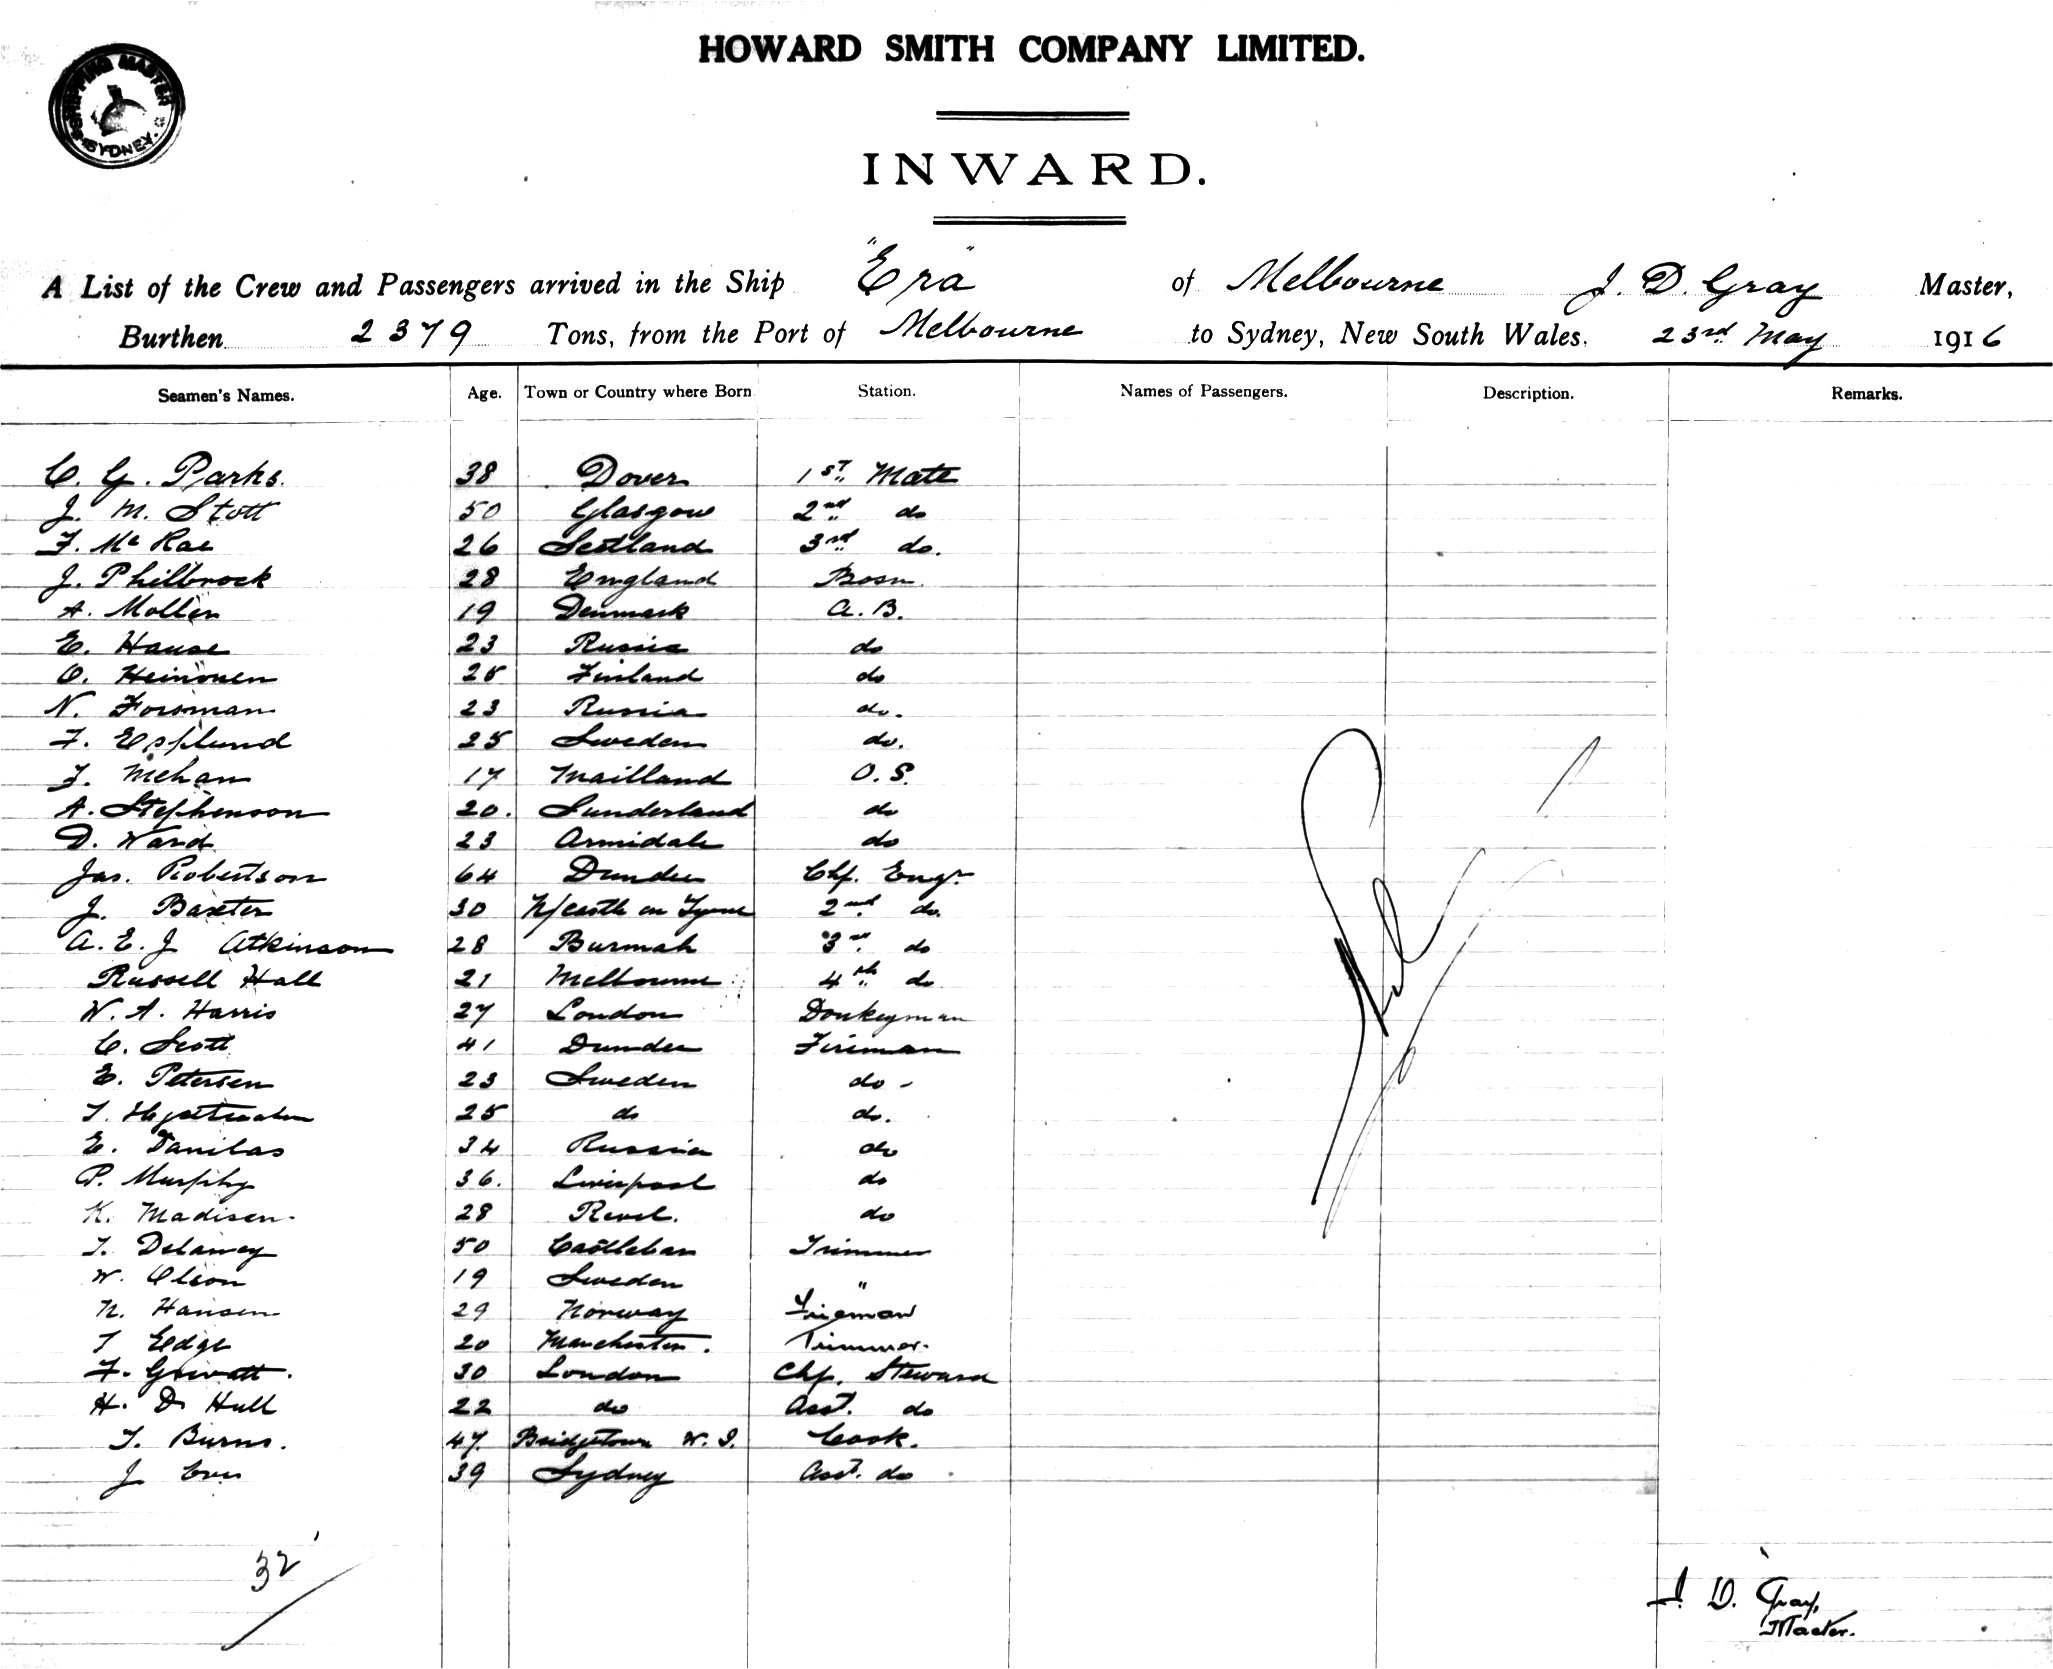 HOWARD SMITH COMPANY LIMITED.
SHIPPING MASTER SYDNEY
INWARD.
A List of the Crew and Passengers arrived in the Ship "Era" of Melbourne J. D. Gray Master,
Burthen 2379 Tons, from the Port of Melbourne to Sydney, New South Wales. 23rd May 1916
Seamen's Names. Age. Town or Country where Born Station. Names of Passengers. Description. Remarks.
C. G. Parks. 38 Dover 1st Mate
J. M. Stott 50 Glasgow 2nd do
F. Mc Rae 26 Scotland 3rd do.
J. Philbrock 28 England Bosn.
A. Mollen 19 Denmark A.B.
E. Hause 23 Russia do
O. Heinonen 25 Finland do
N. Forsman 23 Russia do.
F. Esplund 25 Sweden do.
F. Mehan 17 Mailland O.S.
A. Stephenson 20. Sunderland do
D. Ward 23 Armidale do
Jas. Robertson 64 Dundee Chf. Engr
J. Baxter 30 N/castle on Tyne 2nd do.
A. E. J Atkinson 28 Burmah 3rd do
Russell Hall 21 Melbourne 4th do
W. A. Harris 27 London Donkeyman
C. Scott 41 Dundee Fireman
E. Petersen 23 Sweden do -
T. 25 do do.
E. Danilas 34 Russia do
P. Murphy 36. Liverpool do
K. Madisen. 28 Revel. do
T. Delaney 50 Castlebar Trimmer
W. Olson 19 Sweden "
N. Hansen 29 Norway Fireman
T Edge 20 Manchester. Trimmer.
F. 30 London Chf. Steward
H. D Hull 22 do Asst. do
T. Burns. 47. Bridgetown W. I. Cook.
J 39 Sydney Asst. do
32
J. D. Gray,
Master.